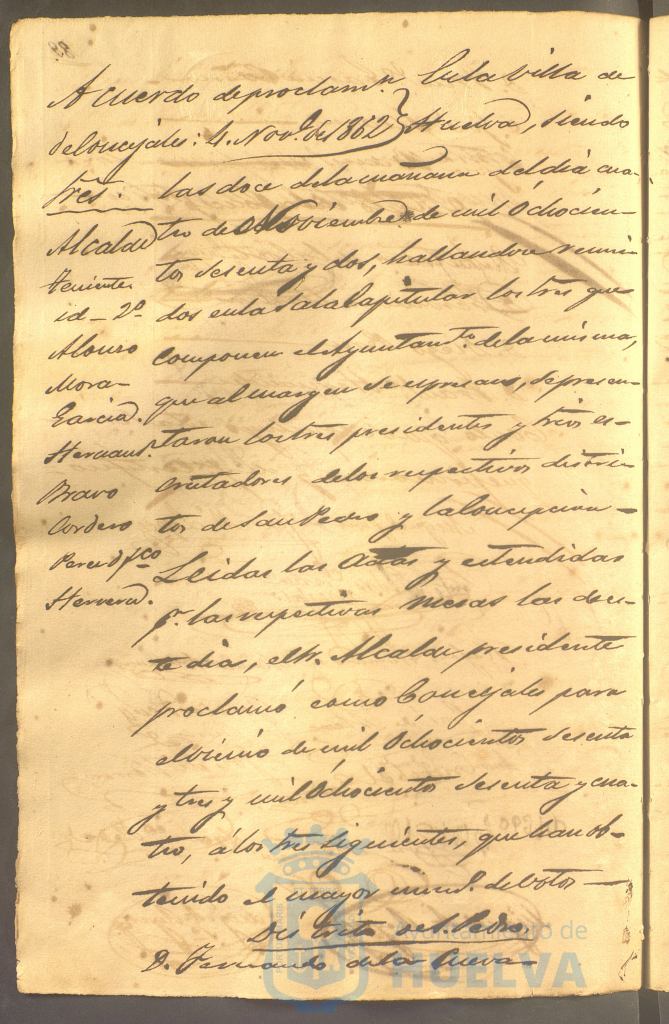 Acuerdo de proclam.n
de Concejales: 4. Nov.e de 1862
Sres.
Alcalde
Teniente
id- 2º
Alonso
Mora
Garcia
Hernans.
Bravo
Cordero
Perez d. Fco
Herrera.
En la Villa de
Huelva, siendo
las doce de la mañana del dia cua-
tro de Noviembre de mil Ochocien-
tos sesenta y dos, hallandose reuni-
dos en la Sala Capitular los Sres que
componen el Ayuntam.to de la misma,
que al margen se espresan, se presen-
taron los tres presidentes y Srios es-
crutadores de los respectivos distri-
tos de San Pedro y la Concepcion-
Leidas las Actas y estendidas
p.r las respectivas mesas las de es-
te dia, el Sr. Alcalde presidente
proclamó como Concejales para
el bienio de mil Ochocientos sesenta
y tres y mil Ochociento sesenta y cua-
tro, á los Sres siguientes, que han ob-
tenido el mayor num.o de votos-
Distrito de S. Pedro.
D. Fernando de la Cueva-
Ayuntamiento de
HUELVA